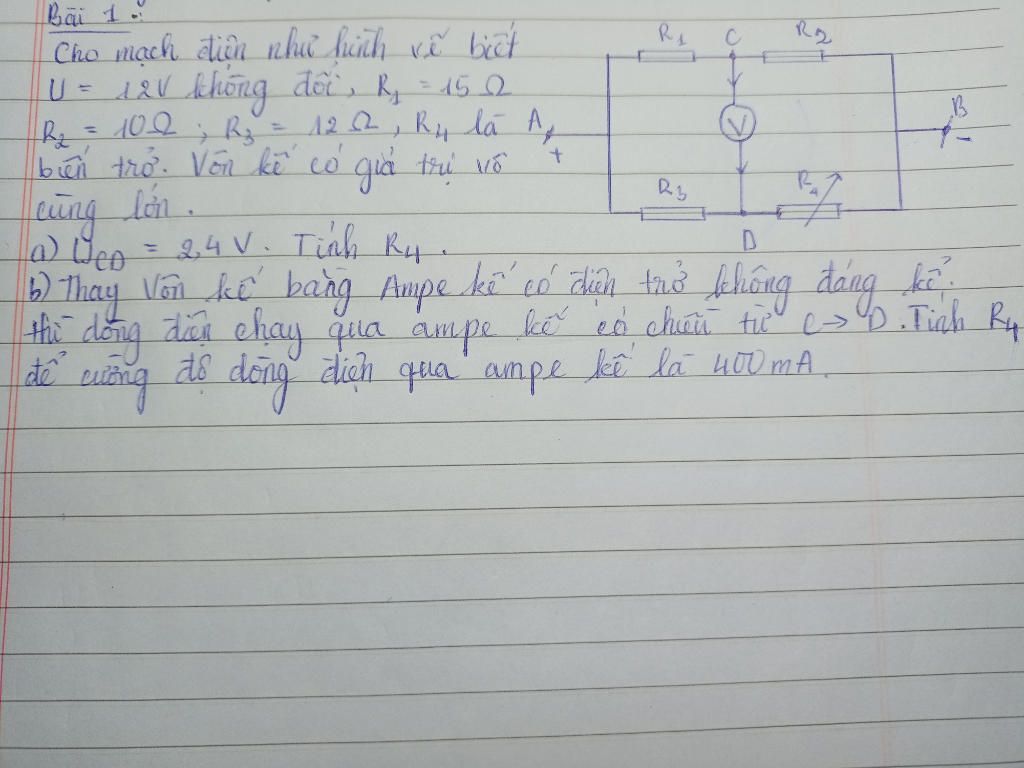 Bài 1:
Cho mạch điện như hình vẽ biết
U = 12V không đổi, R1 = 15Ω
R2 = 10Ω ; R3 = 12Ω, R4 là
biến trở. Vôn kế có giá trị vô
cùng lớn.
R1 C R2
A + V B -
R3 R4
D
a) UCD = 2,4V. Tính R4.
b) Thay Vôn kế bằng Ampe kế có điện trở không đáng kể.
thì dòng điện chạy qua ampe kế có chiều từ C→D. Tính R4
để cường độ dòng điện qua ampe kế là 400mA.